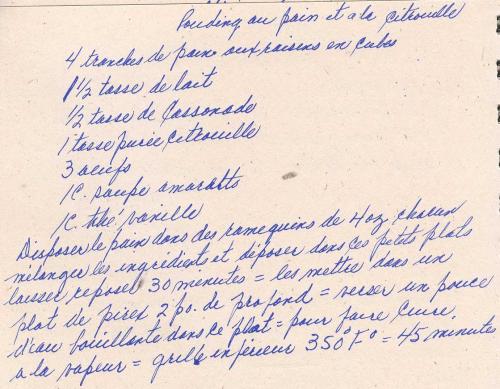 Pouding au pain et a la citrouille
4 tranches de pain aux raisins en cubes
1 1/2 tasse de lait
1/2 tasse de Cassonade
1 tasse purée citrouille
3 oeufs
1 C. soupe amaretts
1 C. thé vanille
Disposer le pain dans des ramequins de 4 oz chacun
mélanger les ingrédients et déposer dans ces petits plats
laisser reposer 30 minutes = les mettre dans un
plat de pirex 2 po. de profond = verser un pouce
d'eau bouillante dans ce plat = pour faire Cuire,
a la vapeur = grille inférieur 350° F° = 45 minutes